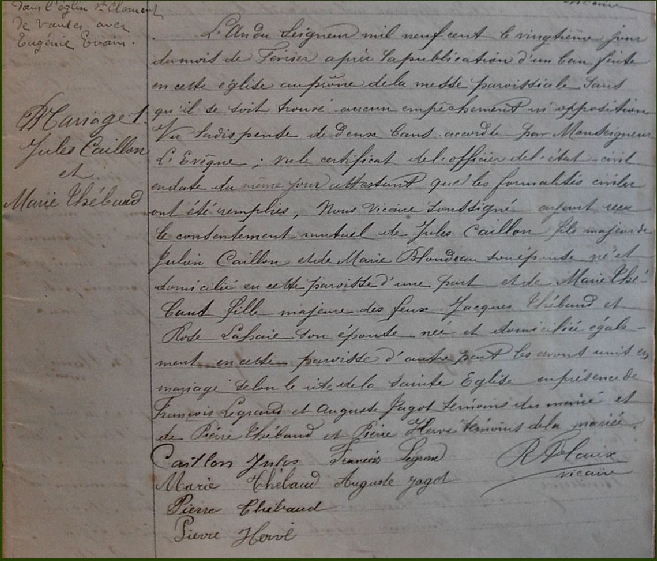 dans l'église St Clément
de Nantes avec
Eugénie Evain.
vicaire
Mariage
Jules Caillon
et
Marie Thébaud
L'An du Seigneur mil neuf cent le vingtième jour
du mois de Février après la publication d'un ban faite
en cette église au prône de la messe paroissiale sans
qu'il se soit trouvé aucun empêchement ni opposition
Vu la dispense de deux bans accordée par Monseigneur
L'Evêque ; vu le certificat de l'officier de l'état civil
en date du même jour attestant que les formalités civiles
ont été remplies, Nous vicaire soussigné ayant reçu
le consentement mutuel de Jules Caillon fils majeur de
Julien Caillon et de Marie Blondeau son épouse né et
domicilié en cette paroisse d'une part et de Marie Thé-
baud fille majeure des feux Jacques Thébaud et
Rose Lahaie son épouse née et domiciliée égale-
ment en cette paroisse d'autre part les avons unis en
mariage selon le rite de la Sainte Eglise en présence de
François Legrand et Auguste Jagot témoins du marié et
de Pierre Thébaud et Pierre Hervé témoins de la mariée.
Caillon Jules Francois
Marie Thébaud Auguste Jagot
vicaire
Pierre Thébaud
Pierre Hervé